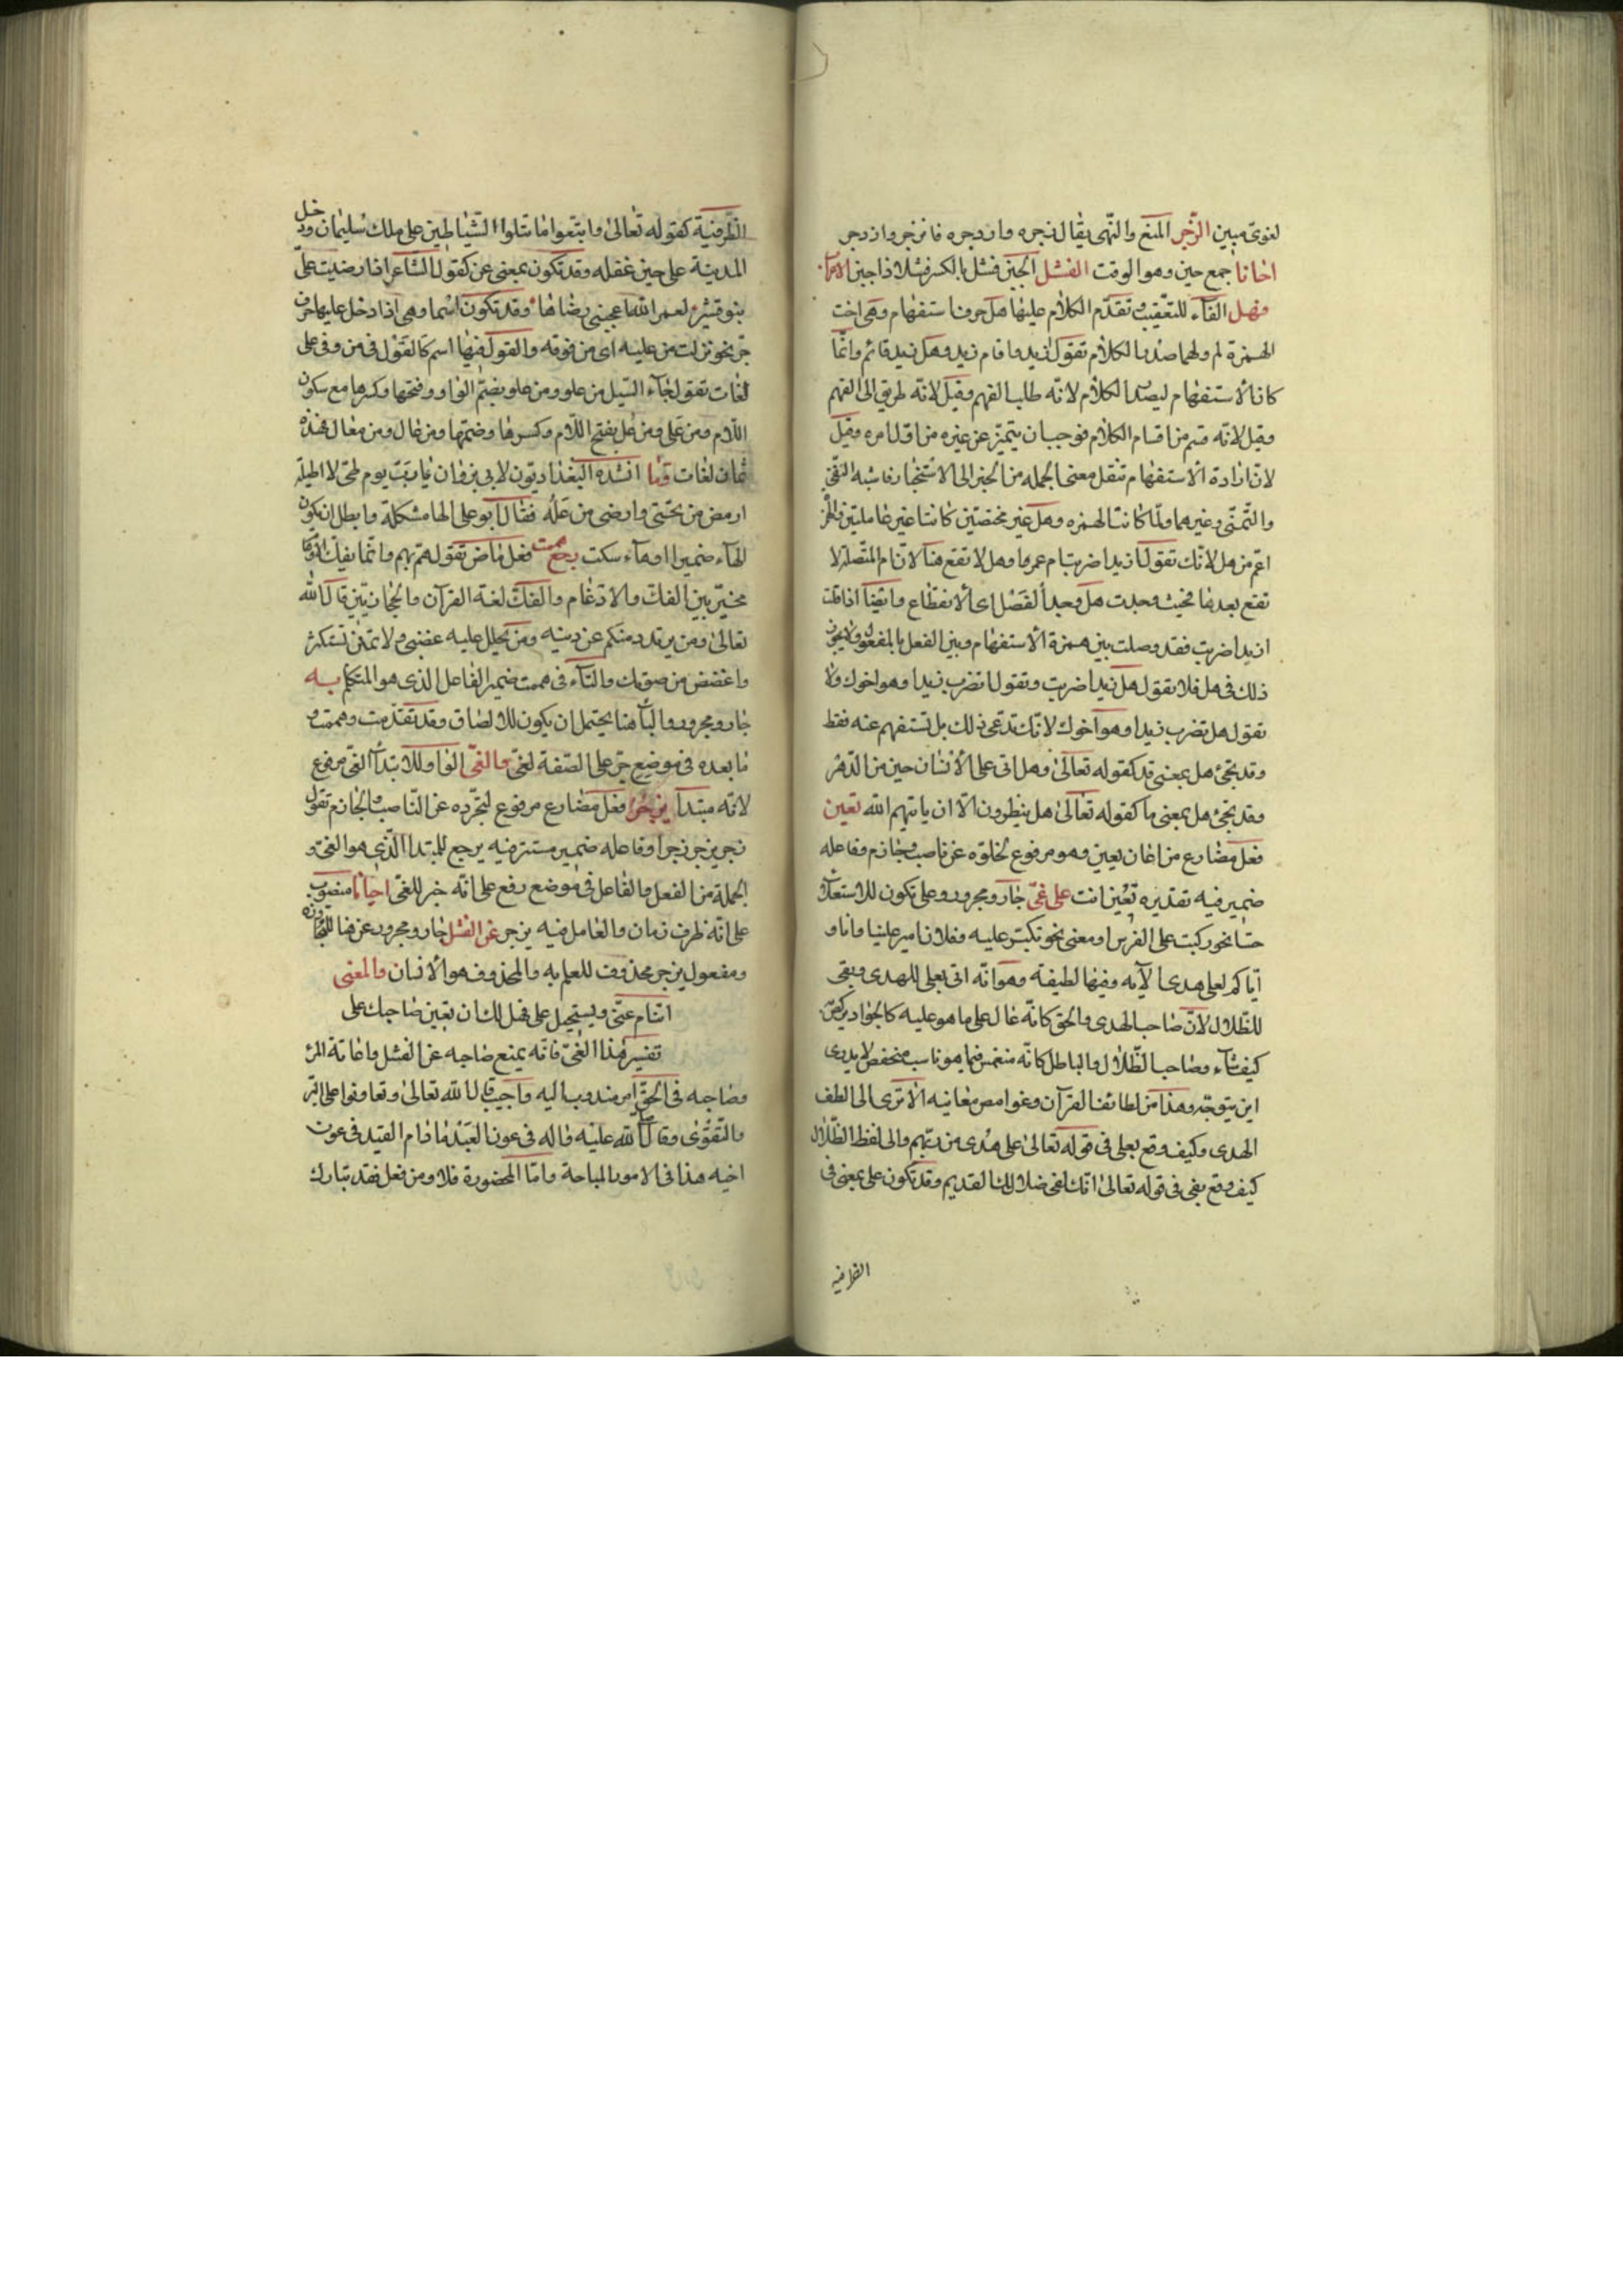 لغوى مبين الزجر المنع والنهى يقال زجره وازدجره فانزجر وازدجر
احيانا جمع حين وهو الوقت الفشل الجبن فشل بالكسر فشلا اذا جبن الاعراب
فهل الفآء للتعقيب وتقدم الكلام عليها هل حرف استفهام وهى اخت
الهمزة لم ولهما صدر الكلام تقول ازيد قام وهل زيد قائم وانما
كان الاستفهام له صدر الكلام لانه طلب الفهم وقيل لانه طريق الى الفهم
وقيل لانه قسم من اقسام الكلام فوجب ان يتميز عن غيره من اول امره وقيل
لان ارادة الاستفهام تنقل معنى الجمله من الخبر الى الاستخبار فاشبه النفى
والتمنى وغيرهما ولما كانت الهمزه وهل غير مختصتين كانتا غير عاملتين والهمزة
اعم من هل لانك تقول ازيدا ضربت ام عمروا وهل لا تقع هنا لان ام المتصلة لا
تقع بعدها فحيث وجدت هل وجد الفصل اى الانقطاع وايضا اذا قلت
ازيدا ضربت فقد وصلت بين همزة الاستفهام وبين الفعل بالمفعول ولا يجوز
ذلك فى هل فلا تقول هل زيدا ضربت وتقول اتضرب زيدا وهو اخوك ولا
تقول هل تضرب زيدا وهو اخوك لانك تدعى ذلك بل تستفهم عنه فقط
وقد تجئ هل بمعنى قد كقوله تعالى وهل اتى على الانسان حين من الدهر
وقد تجئ هل بمعنى ما كقوله تعالى هل ينظرون الا ان ياتيهم الله تعين
فعل مضارع من اعان يعين وهو مرفوع لخلوه عن ناصب وجازم وفاعله
ضمير فيه تقديره تعين انت على غى جار ومجرور وعلى تكون للاستعلآء
حسّا نحو ركبت على الفرس او معنى نحو تكبر عليه وفلان امير علينا وانا او
اياكم لعلى هدى الآيه وفيها لطيفة وهو انه اتى بعلى للهدى وبفى
للظلال لان صاحب الهدى والحق كانه عال على ما هو عليه كالجواد يركض
كيف شآء وصاحب الظلال والباطل كانه منغمس فيما هو ناسب منخفض لا يدرى
اين يتوجه وهذا من لطائف القرآن وغوامص معانيه الا ترى الى لطف
الهدى وكيف وقع بعلى فى قوله تعالى على هدى من ربهم والى لفظ الظلال
كيف وقع بفى فى قوله تعالى انك لفى ضلالك القديم وقد تكون على بمعنى فى
الظرفيه
الظرفية كقوله تعالى واتبعوا ما تتلوا الشياطين على ملك سليمان ودخل
المدينة على حين غفله وقد تكون بمعنى عن كقول الشاعر اذا رضيت علىّ
بنو قشير لعمر الله اعجبنى رضاها وقد تكون اسما وهى اذا دخل عليها حرف
جر نحو نزلت من عليه اى من فوقه والقول فيها اسم كالقول فى من وفى على
لغات تقول جآء السيل من علو ومن علو بضم الواو وفتحها وكسرها مع سكون
اللام ومن على ومن عل بفتح اللام وكسرها وضمها ومن عال ومن معال هذه
ثمان لغات وما انشده البغداديون لابى ثروان يا رب يوم لى لا اظلله
ارمض من تحتى واضحى من عله فقال ابو على الها مشكلة وابطل ان تكون
الهآء ضميرا او هآء سكت همت فعل ماض تقول هم يهم وانما يفك
مخير بين الفك والادغام والفك لغة القرآن والحجازيين قال الله
تعالى ومن يرتدد منكم عن دينه ومن يحلل عليه غضبى ولا تمنن تستكثر
واغضض من صوتك والتآء فى هممت ضمير الفاعل الذى هو المتكلم به
جار ومجرور والبآ هنا يحتمل ان يكون للالصاق وقد تقدمت وهممت و
ما بعده فى موضع جر على الصفة لغى والغى الواو للابتدآ الغى مرفوع
لانه مبتدآ يزجر فعل مضارع مرفوع لتجرده عن الناصب والجازم تقول
زجر يزجر زجرا وفاعله ضمير مستتر فيه يرجع للمبتدا الذى هو الغى و
الجملة من الفعل والفاعل فى موضع رفع على انه خبر للغى احيانا منصوب
على انه ظرف زمان والعامل فيه يزجر عن الفشل جار ومجرور عن هنا للمجاوزه
ومفعول يزجر محذوف للعلم به والمحذوف هو الانسان والمعنى
اتنام عنى ويستحيل على فهل لك ان تعين صاحبك على
تفسير هذا الغى فانه يمنع صاحبه عن الفشل واعانة المرء
وصاحبه فى الحق امر مندوب اليه واجيب قال الله تعالى وتعاونوا على البر
والتقوى وقال صلى الله عليه واله فى عون العبد ما دام العبد فى عون
اخيه هذا فى الامور المباحة واما المحضورة فلا ومن فعل فقد تبارك